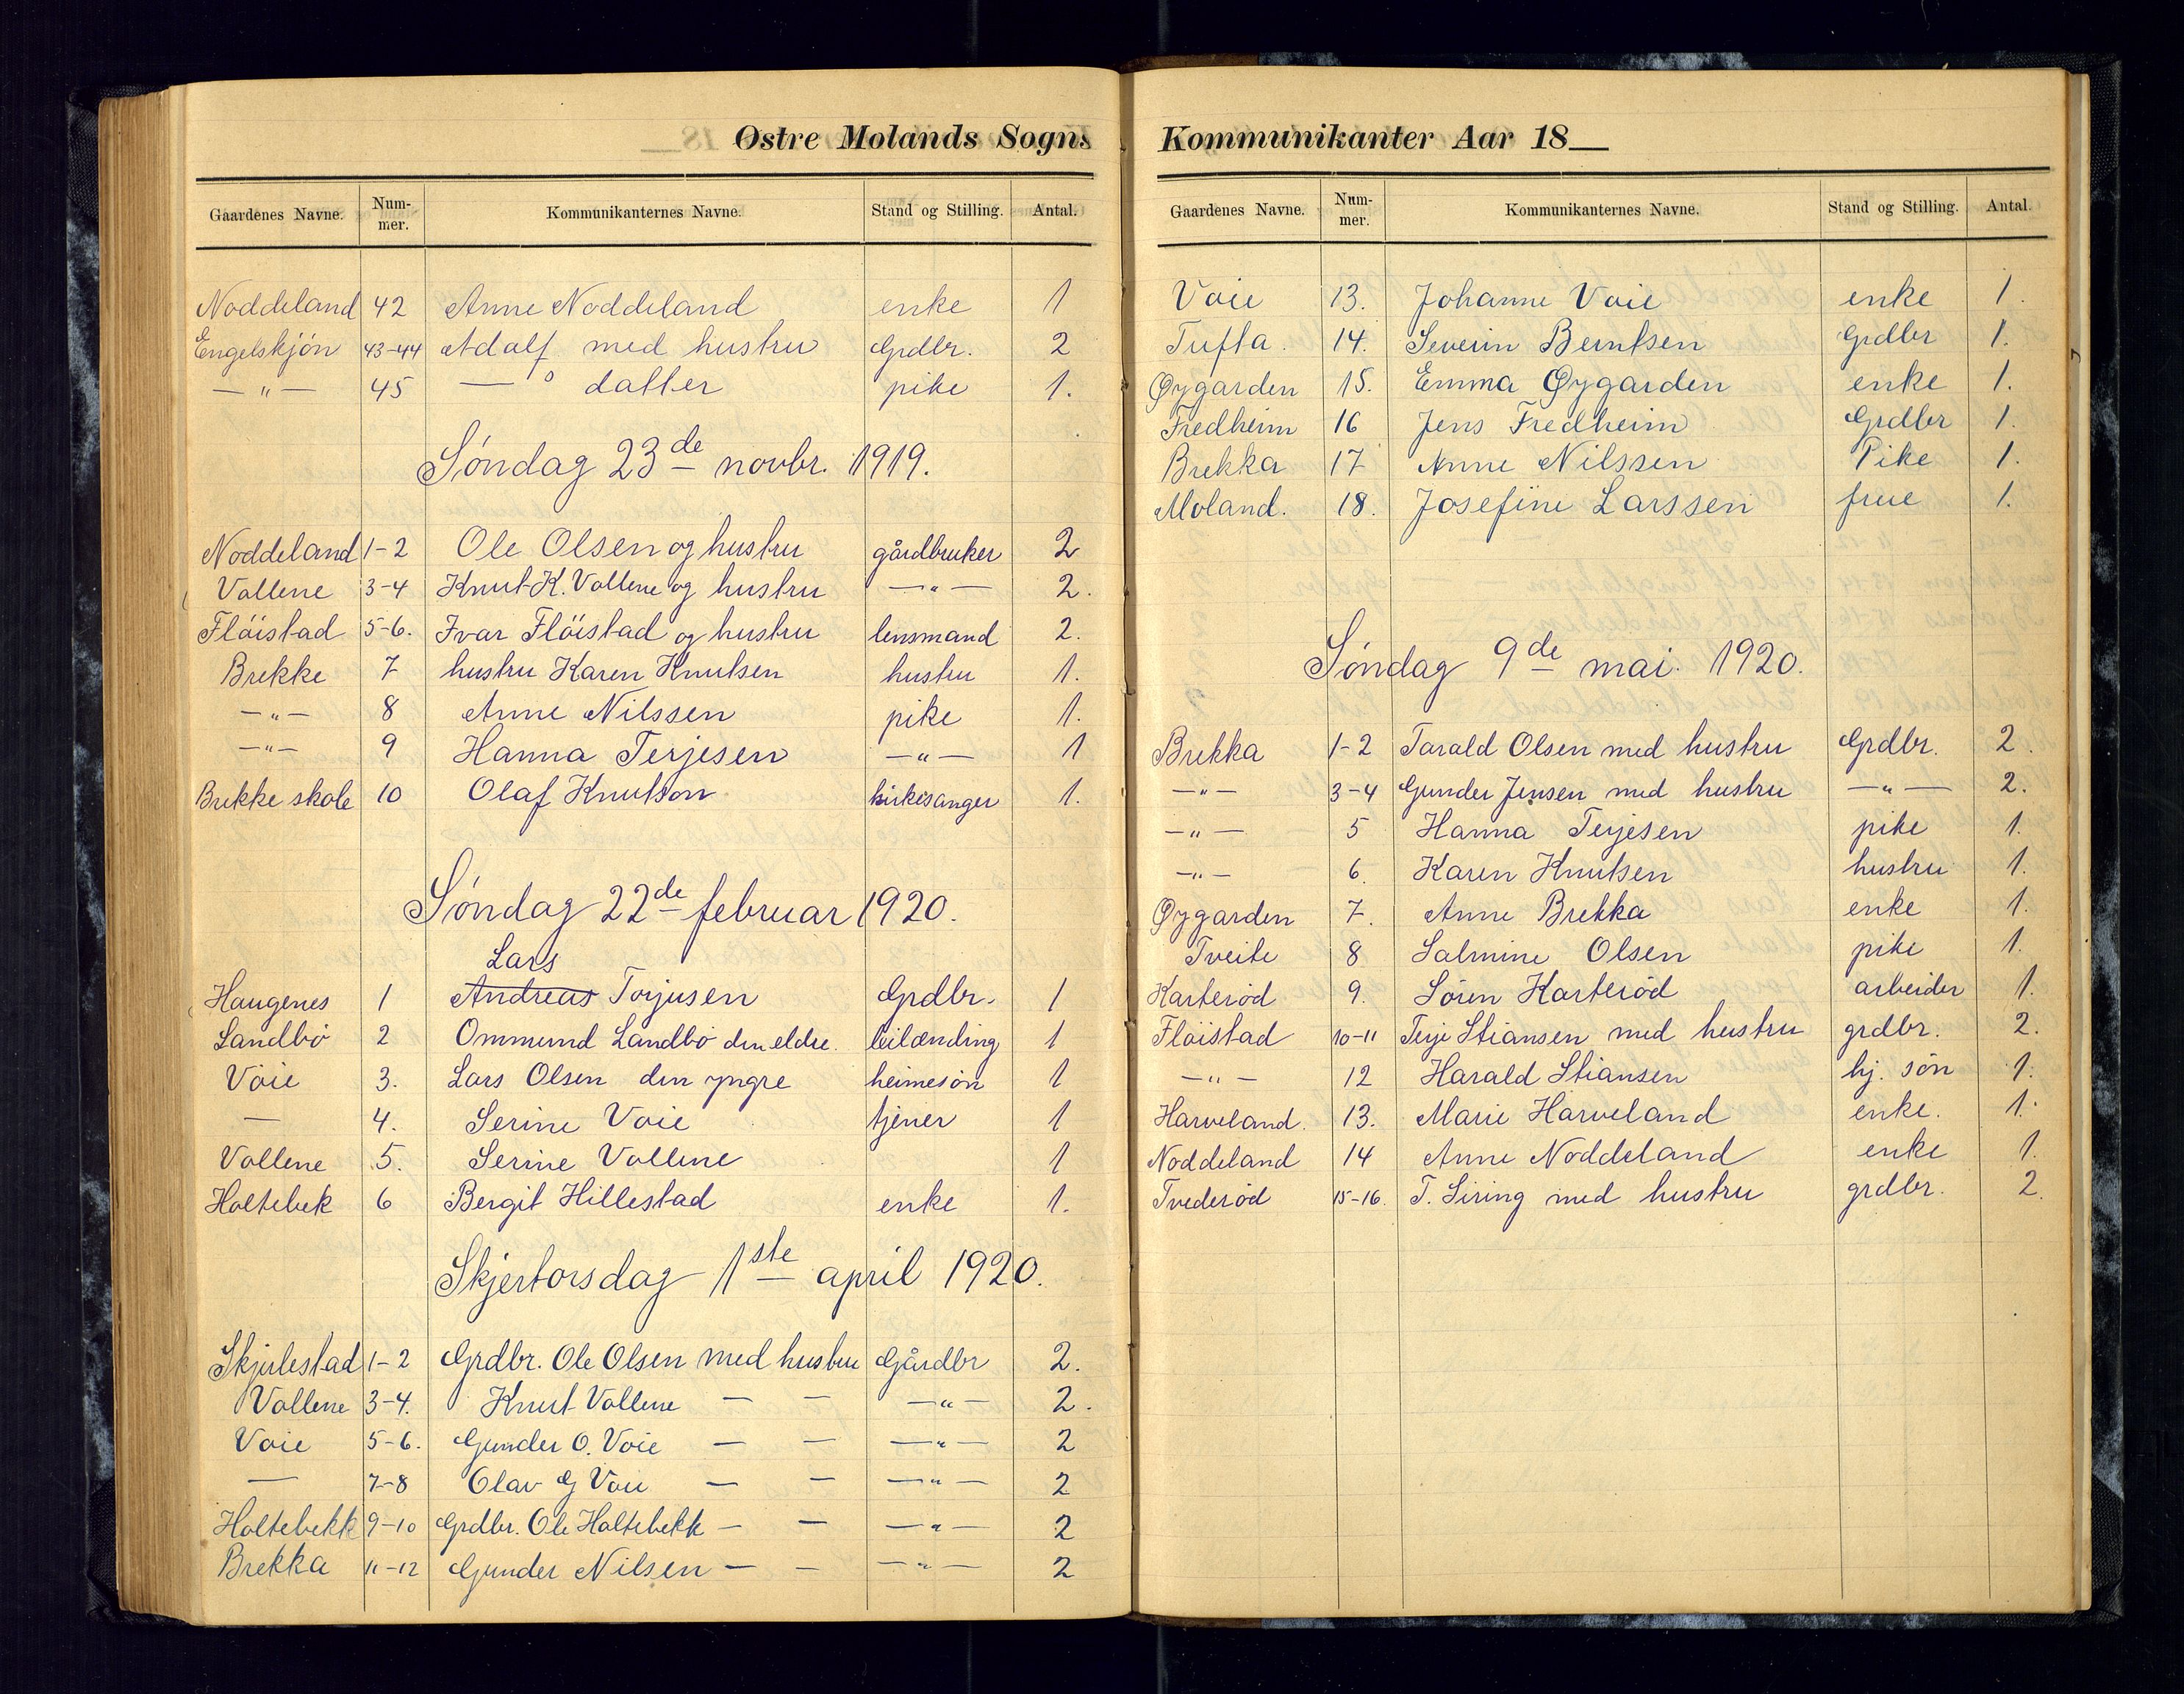 Østre Molands Sogns
Gaardenes Navne. Num-mer. Kommunikanternes Navne. Stand og Stilling. Antal.
Noddeland 42 Anne Noddeland enke 1
Engelskjön 43-44 Adolf med hustru Grdbr. 2
— " — 45 — " datter pike 1.
Søndag 23de novbr. 1919.
Noddeland 1-2 Ole Olsen og hustru gårdbruker 2
Vollene 3-4 Knut K. Vollene og hustru — " — 2.
Flöistad 5-6. Ivar Flöistad og hustru lensmand 2.
Brekke 7 hustru Karen Knutsen hustru 1.
— " — 8 Anne Nilssen pike 1.
— " — 9 Hanna Terjesen — " — 1
Brekke skole 10 Olaf Knutson kirkesanger 1.
Søndag 22de februar 1920.
Lars
Haugenes 1 Andreas Torjusen Grdbr. 1
Landbö 2 Ommund Landbö den eldre. leilænding 1
Voie 3. Lars Olsen den yngre heimesön 1
— 4. Serine Voie tjener 1
Vollene 5. Serine Vollene 1
Holtebek 6 Bergit Hillestad enke 1.
Skjertorsdag 1ste april 1920.
Skjulestad 1-2 Grdbr. Ole Olsen med hustru Gårdbr 2.
Vollene 3-4. Knut Vollene — — — " — 2.
Voie 5-6. Gunder O. Voie — — — " — 2
— 7-8 Olav G Voie — — — " — 2
Holtebekk 9-10 Grdbr. Ole Holtebekk — — — " — 2
Brekka 11-12 Gunder Nilsen — — — " — 2
Kommunikanter Aar 18__
Gaardenes Navne. Num-mer. Kommunikanternes Navne. Stand og Stilling. Antal.
Voie 13. Johanne Voie enke 1.
Tufta. 14. Severin Berntsen Grdbr 1.
Øygarden 15. Emma Øygarden enke 1.
Fredheim 16 Jens Fredheim Grdbr 1.
Brekka 17 Anne Nilssen Pike 1.
Moland. 18. Josefine Larssen frue 1.
Søndag 9de mai. 1920.
Brekka 1-2 Tarald Olsen med hustru Grdbr. 2.
— " — 3-4 Gunder Jensen med hustru — " — 2.
— " — 5 Hanna Terjesen pike 1.
— " — 6. Karen Knutsen hustru 1.
Øygarden 7. Anne Brekka enke 1.
Tveite 8 Salmine Olsen pike 1.
Karteröd 9. Sören Karteröd arbeider 1.
Flöistad 10-11 Terje Stiansen med hustru grdbr. 2.
— " — 12 Harald Stiansen hj. sön 1.
Harveland. 13. Marie Harveland enke. 1.
Noddeland 14 Anne Noddeland enke 1.
Tvederöd 15-16. T. Siring med hustru grdbr. 2.